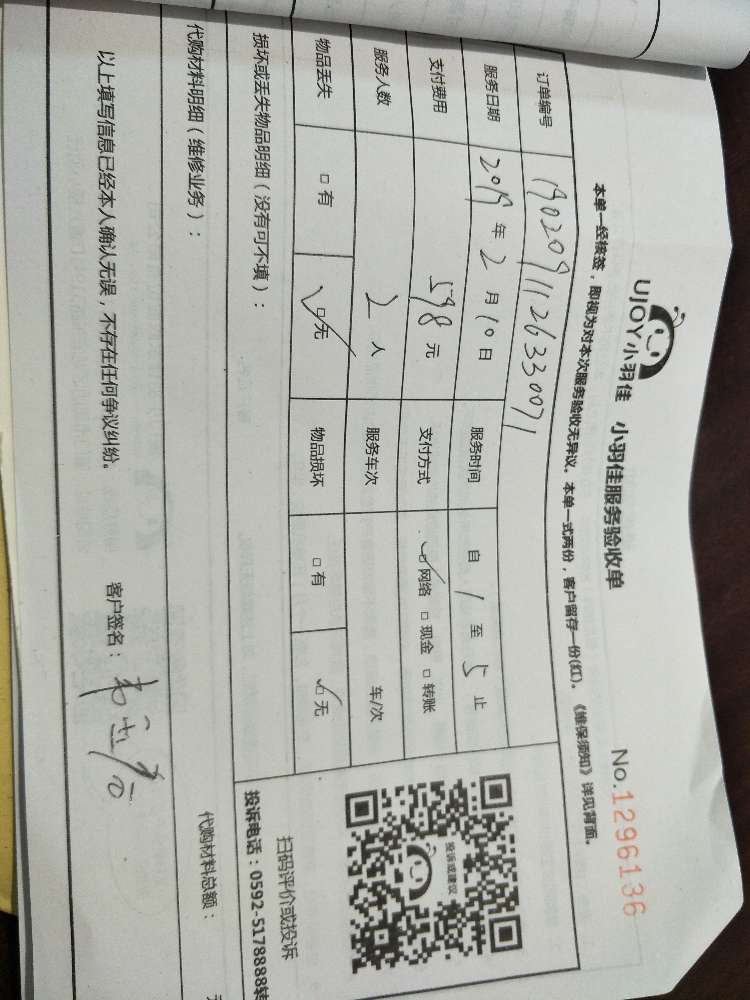 UJOY小羽佳 小羽佳服务验收单 No.1296136
本单一经核签，即视为对本次服务验收无异议。本单一式两份，客户留存一份(红)。《维保须知》详见背面。
订单编号 1902091126330071
服务日期 2019年2月10日 服务时间 自1至5止
支付费用 598元 支付方式 网络 现金 转账
服务人数 2人 服务车次 车/次
物品丢失 有 无 物品损坏 有 无
投诉或建议
扫码评价或投诉
损坏或丢失物品明细（没有可不填）：
投诉电话：0592-5178888转
代购材料明细（维修业务）： 代购材料总额：
以上填写信息已经本人确认无误，不存在任何争议纠纷。 客户签名：